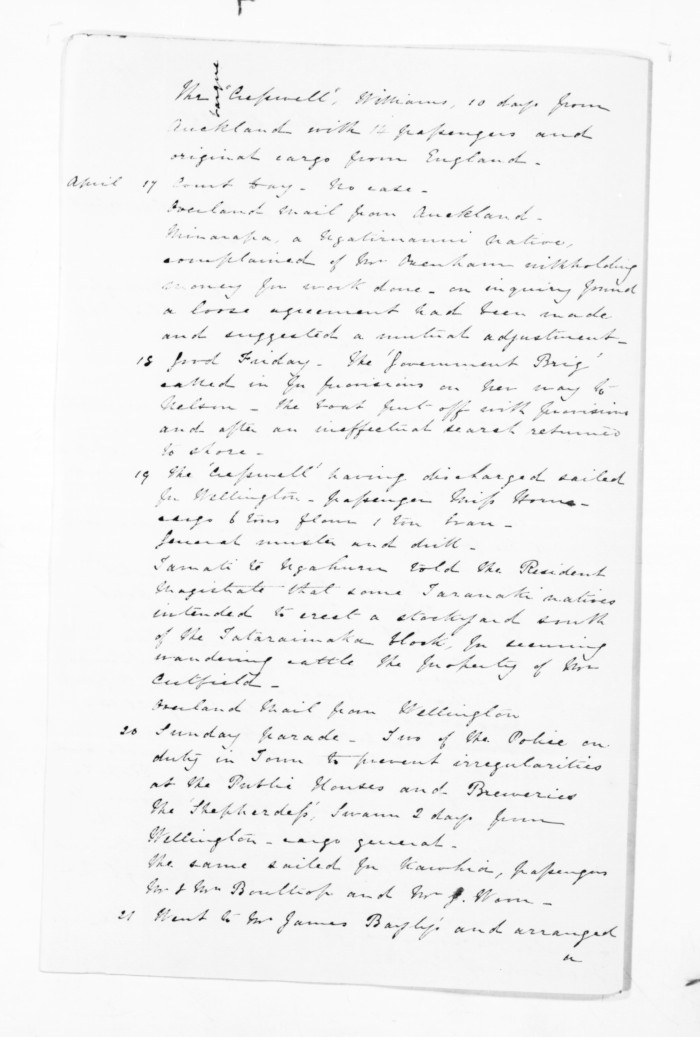 The barque 'Cresswell', Williams, 10 days from
Auckland with 12 passengers and
original cargo from England -
April 17 Court day - No case -
Overland Mail from Auckland -
Minarapa, a Ngatiruanui Native,
complained of Mr Oxenham withholding
money for work done - on inquiry found
a loose agreement had been made
and suggested a mutual adjustment -
18 Good Friday - The 'Government Brig'
called in for provisions on her way to
Nelson - The boat put off with provisions
and after an ineffectual search returned
to shore -
19 The 'Cresswell' having discharged sailed
for Wellington - passenger Miss Home -
cargo 6 tons flour 1 ton bran -
General muster and drill -
Tamati te Ngahuru told the Resident
Magistrate that some Taranaki natives
intended to erect a stockyard south
of the Tataraimaka block, for securing
wandering cattle the property of Mr
Cutfield -
Overland Mail from Wellington
20 Sunday parade - Two of the Police on
duty in Town to prevent irregularities
at the Public Houses and Breweries
The 'Shepherdess', Swann 2 days from
Wellington - cargo general -
The same sailed for Kawhia, passengers
Mr & Mrs and Mr J.
21 Went to Mr James Bayly's and arranged